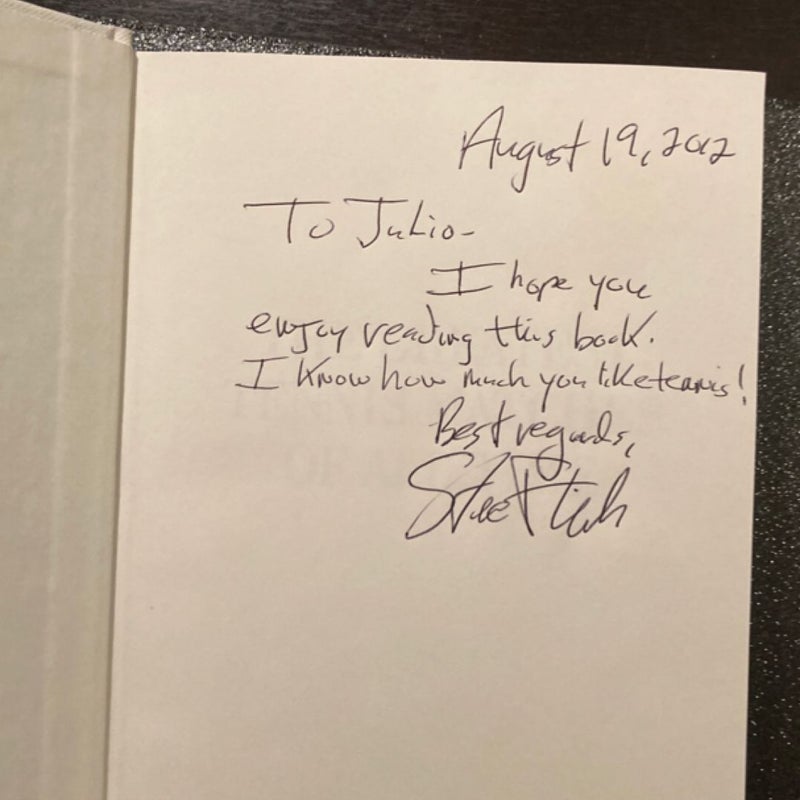 August 19, 2012
To Julio-
I hope you
enjoy reading this book.
I know how much you like tennis!
Best regards,